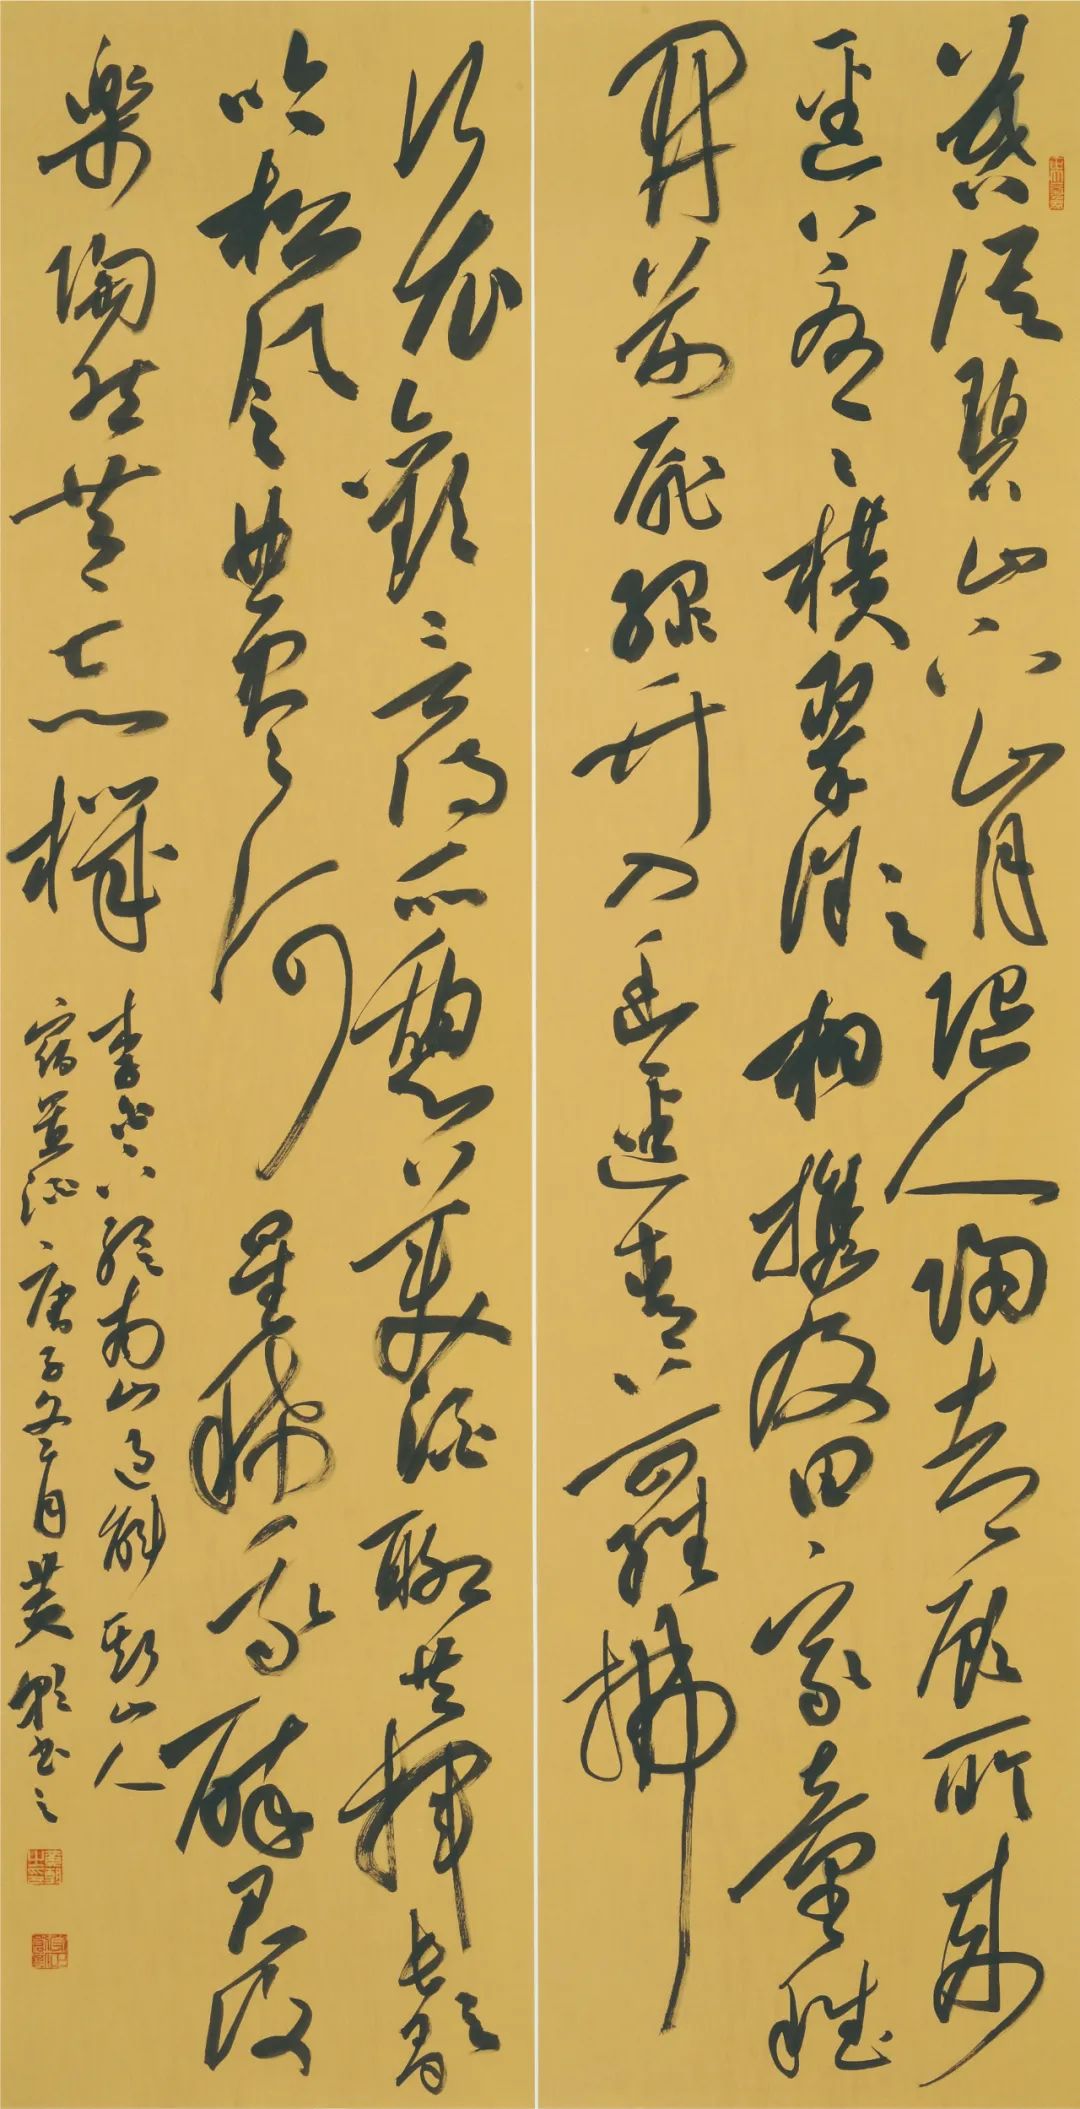 暮從碧山下山月随人歸却顧所來
徑蒼蒼橫翠微相攜及田家童稚
開荆扉綠竹入幽徑青蘿拂
行衣歡言得所憩美酒聊共揮長歌
吟松風曲盡河星稀我醉君復
樂陶然共忘機
李白下終南山過斛斯山人
宿置酒庚子冬月黄書之